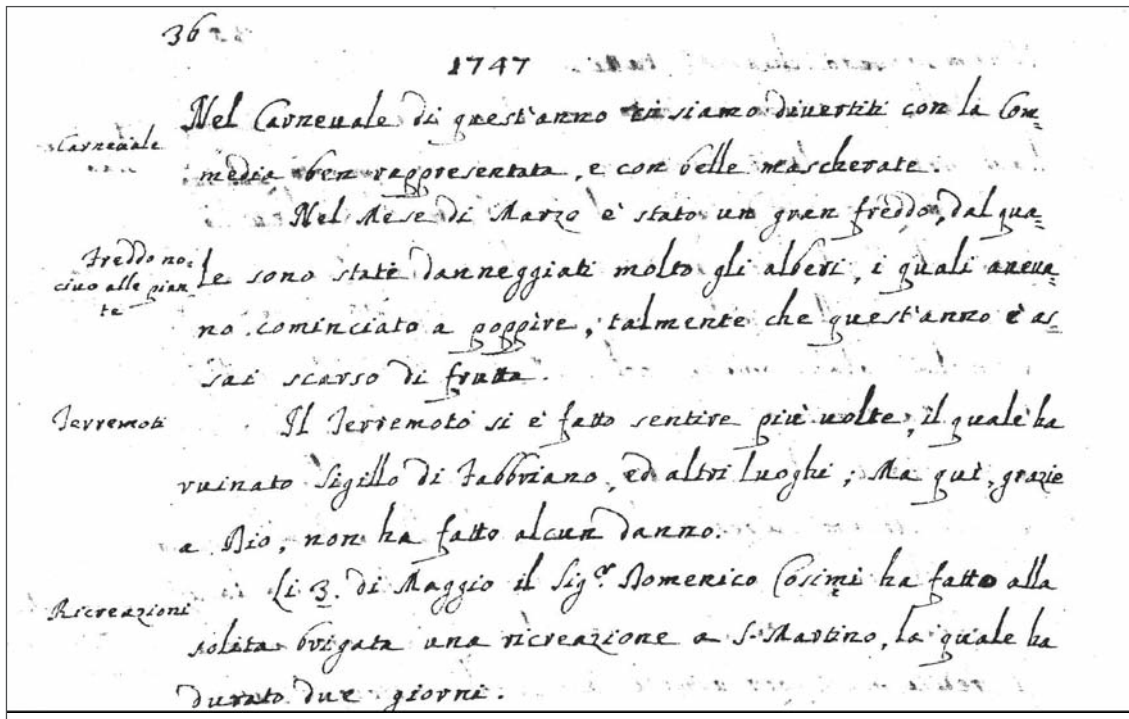 36
1747
Carneuale
Nel Carneuale di quest'anno ci siamo diuertiti con la Com=
media ben rappresentata, e con belle mascherate.
Nel Mese di Marzo è stato un gran freddo, dal qua=
Freddo no=
ciuo alle pian=
te
le sono stati danneggiati molto gli alberi, i quali aueua=
no cominciato a poppire, talmente che quest'anno è as=
sai scarso di frutta.
Terremoti
Il Terremoto si è fatto sentire più uolte, il quale ha
ruinato Sigillo di Fabbriano, ed altri luoghi; Ma quì, grazie
a Dio, non ha fatto alcun danno.
Ricreazioni
Li 3. di Maggio il Sig.r Domenico Cosimi ha fatto alla
solita brigata una ricreazione a S. Martino, la quale ha
durato due giorni.